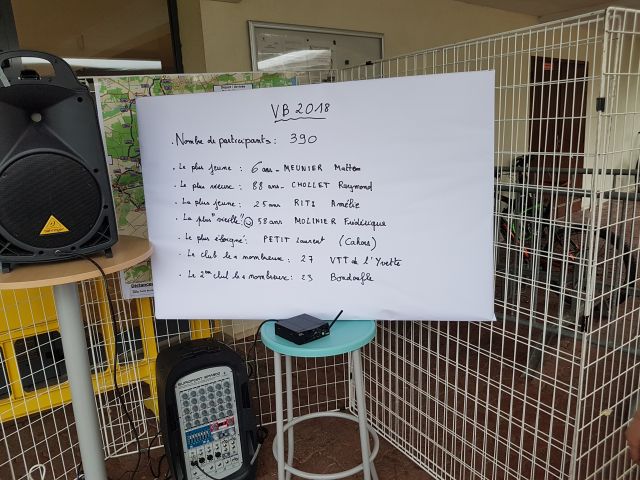 VB 2018
. Nombre de participants : 390
. Le plus jeune : 6 ans - MEUNIER Matteo
. Le plus vieux : 88 ans - CHOLLET Raymond
. La plus jeune : 25 ans RITI Amélie
. La plus "vieille" : 58 ans MOLINIER Frédérique
. Le plus éloigné : PETIT Laurent (Cahors)
. Le club le + nombreux : 27 VTT de l'Yvette
. Le 2ème club le + nombreux : 23 Bondoufle